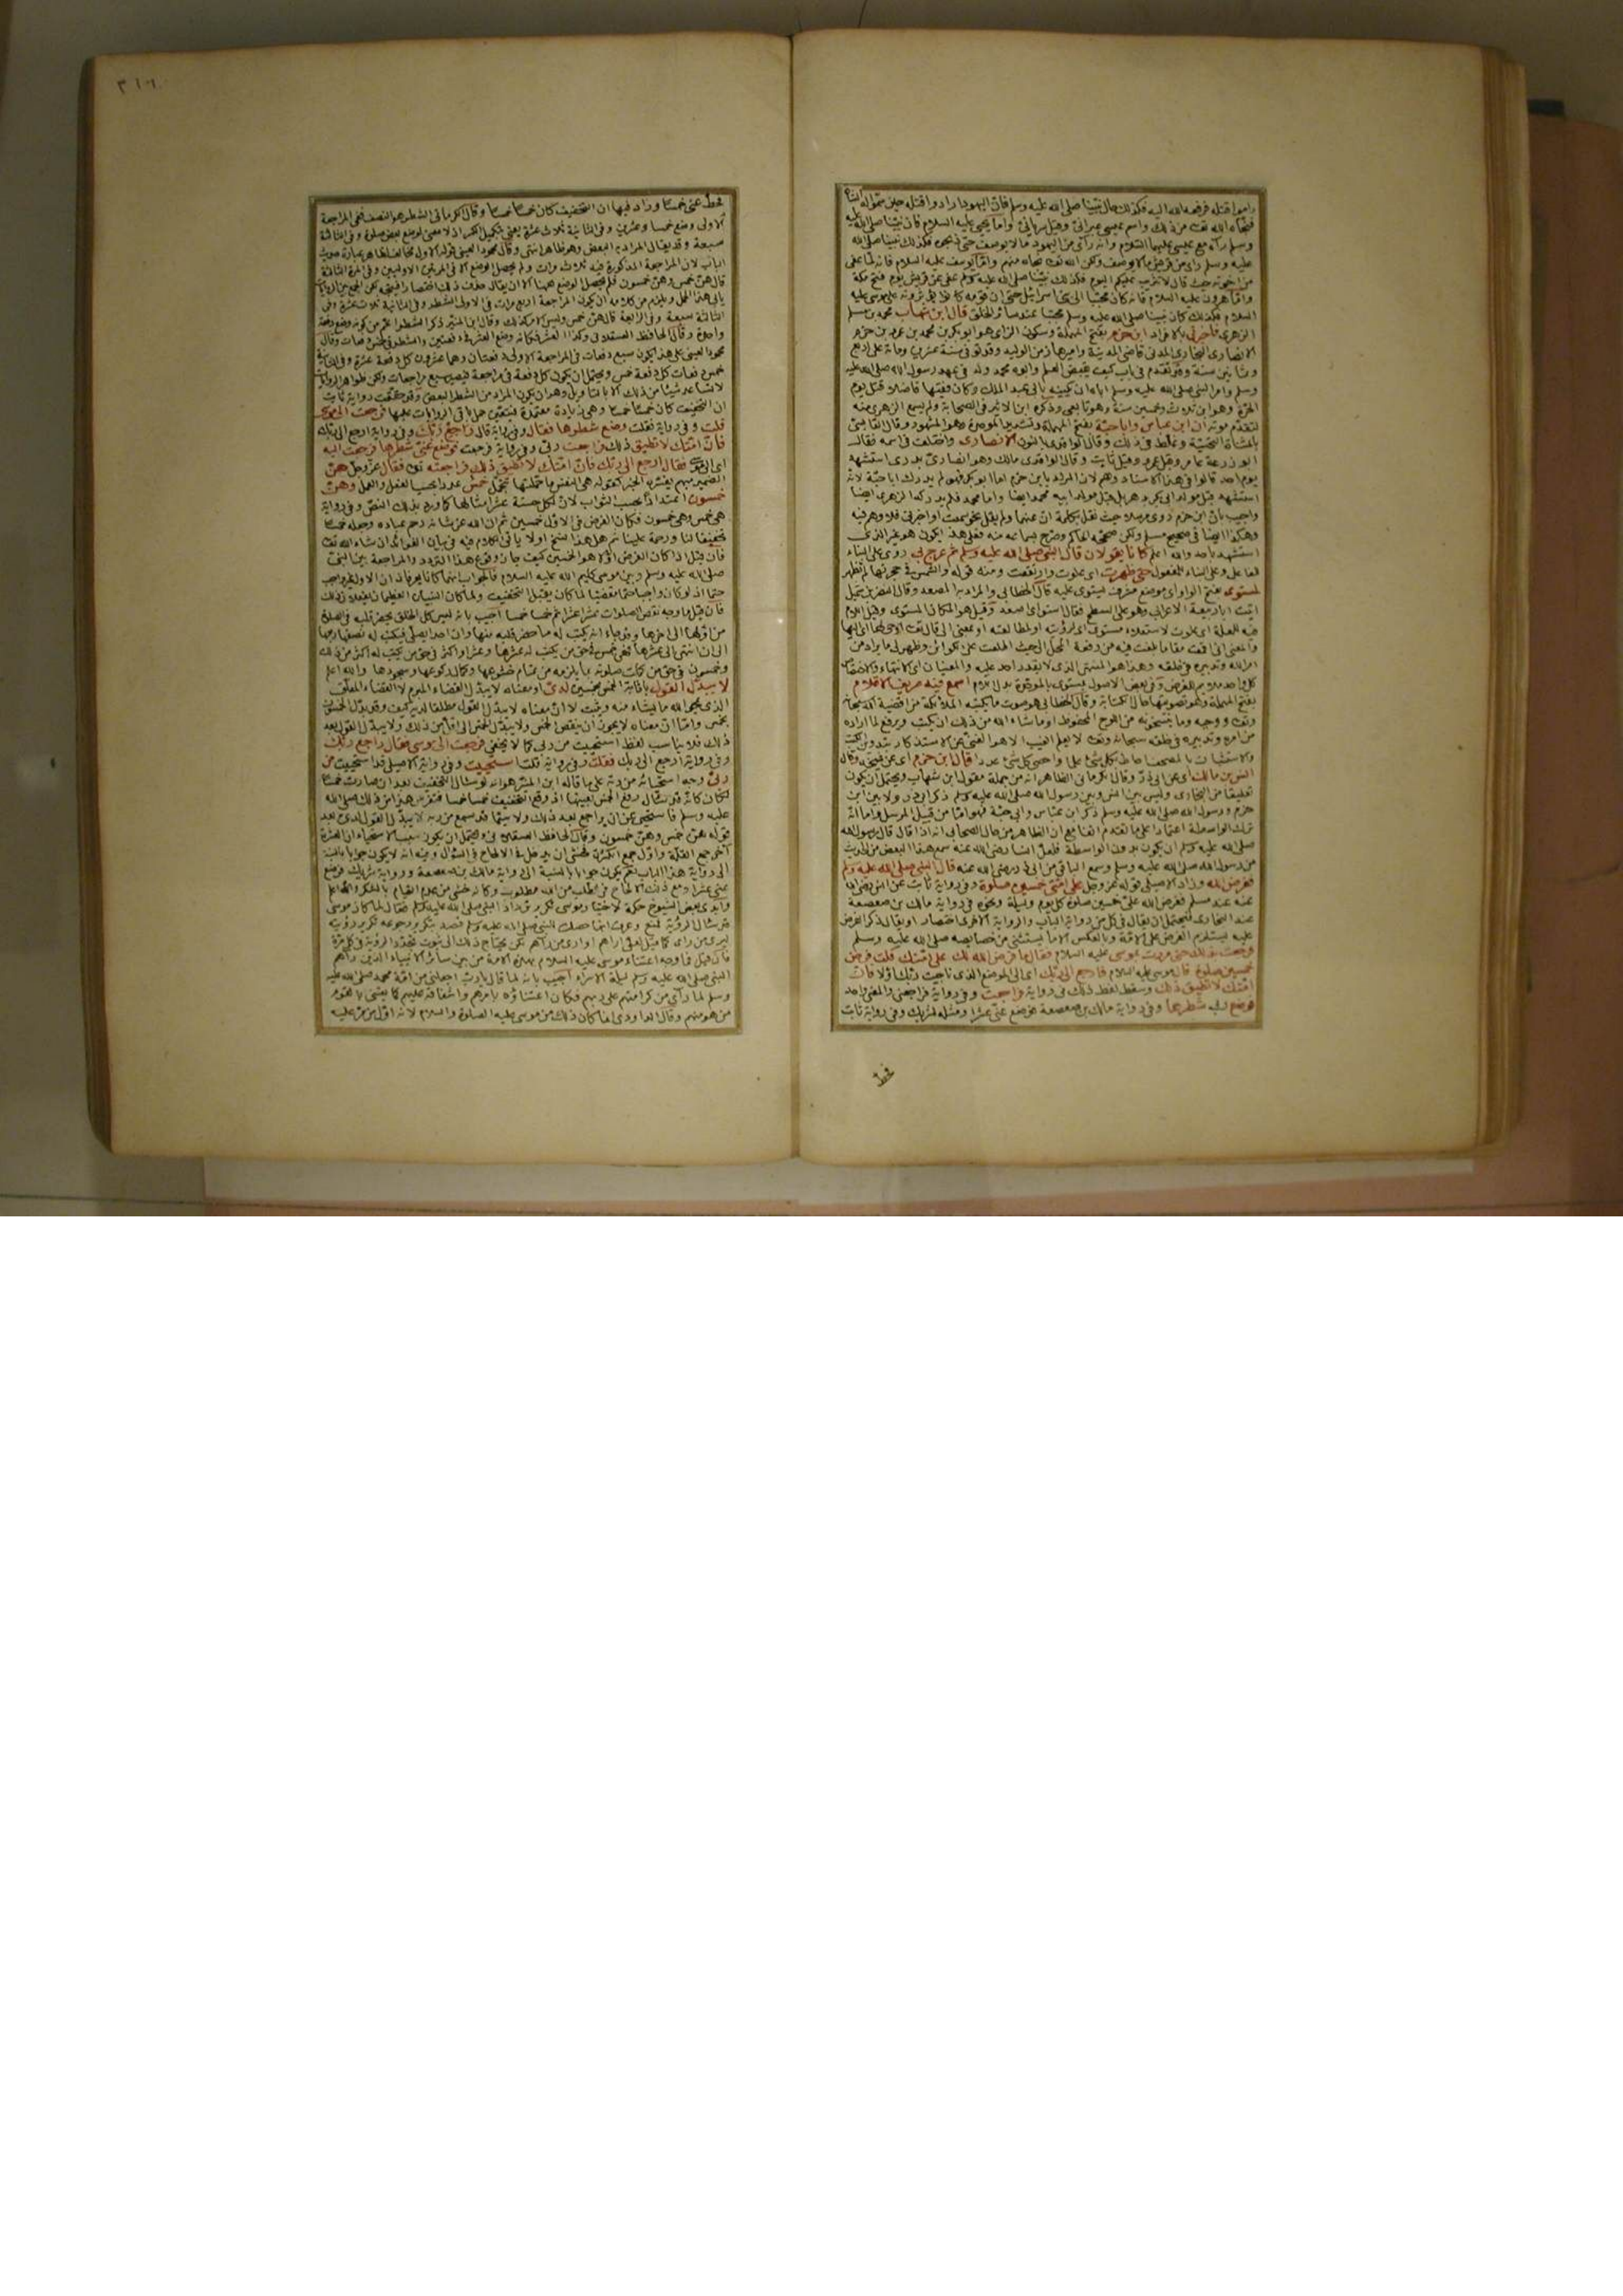 واموا قتله فرفعه الله اليه فكذلك حال نبينا صلى الله عليه وسلم فان اليهود ارادوا قتله حين
فنجاه الله تعالى من ذلك واسم عيسى عبرانى وقيل سريانى واما يحيى عليه السلام فان نبينا صلى الله عليه
وسلم رآه مع عيسى عليهما السلام وانه رأى من اليهود مالا يوصف حتى ذبحوه فكذلك نبينا صلى الله
عليه وسلم رأى من قريش مالا يوصف ولكن الله تعالى نجاه منهم واما يوسف عليه السلام فانه لما عفى
من اخوته حيث قال لا تثريب عليكم اليوم فكذلك نبينا صلى الله عليه وسلم عفى عن قريش يوم فتح مكة
واما هرون عليه السلام فانه كان محببا الى بنى اسرائيل حتى ان قومه كانوا يؤثرونه على موسى عليه
السلام فكذلك كان نبينا صلى الله عليه وسلم محببا عند سائر الخلق قال ابن شهاب محمد بن مسلم
الزهرى فاخبرنى بالافراد ابن حزم بفتح المهملة وسكون الزاى هو ابو بكر بن محمد بن عمرو بن حزم
الانصارى النجارى المدنى قاضى المدينة واميرها زمن الوليد وقد توفى سنة عشرين ومائة على اربع
وثمانين سنة وقد تقدم فى باب كيف يقبض العلم وابوه محمد ولد فى عهد رسول الله صلى الله عليه
وسلم وامر النبى صلى الله عليه وسلم اباه ان يكنيه بابى عبد الملك وكان فقيها فاضلا قتل يوم
الحرة وهو ابن ثلاث وخمسين سنة وهو تابعى وذكره ابن الاثير فى الصحابة ولم يسمع الزهرى منه
لتقدم موته ان ابن عباس وابا حبة بفتح المهملة وتشديد الموحدة وهو المشهور وقال القابسى
بالمثناة التحتية وغلط فى ذلك وقال الواقدى بالنون الانصارى واختلف فى اسمه فقال
ابو زرعة عامر وقيل عمرو وقيل ثابت وقال الواقدى مالك وهو انصارى بدرى استشهد
يوم احد قالوا فى هذا الاسناد وهم لان المراد بابن حزم اما ابو بكر فهو لم يدرك ابا حبة لانه
استشهد قبل مولد ابى بكر بدهر بل قبل مولد ابيه محمد ايضا واما محمد فلم يدركه الزهرى ايضا
واجيب بان ابن حزم روى مرسلا حيث نقل بكلمة ان عنهما ولم يقل نحو سمعت او اخبرنى فلا وهم فيه
وهكذا ايضا فى صحيح مسلم
استشهد باحد والله اعلم كانا يقولان قال النبى صلى الله عليه وسلم ثم عرج بى روى على البناء
للفاعل وعلى البناء للمفعول حتى ظهرت اى علوت وارتفعت ومنه قوله والشمس فى حجرتها لم تظهر
لمستوى بفتح الواو اى موضع مشرف يستوى عليه قال الخطابى والمراد به المصعد وقال النضر بن شميل
اتيت ابا ربيعة الاعرابى وهو على السطح فقال استوا اى اصعد وقيل هو المكان المستوى وقيل اللام
فيه للعلة اى علوت لاستعلاء مستوى او لرؤيته او لمطالعته او بمعنى الى قال تعالى اوحى لها اى اليها
امر الله وتدبيره فى خلقه وهذا هو المنتهى الذى لا يقدر احد عليه
بمستوى بالموحدة بدل اللام اسمع فيه صريف الاقلام
بفتح المهملة وهو تصويتها حال الكتابة وقال الخطابى هو صوت ما يكتبه الملائكة من اقضية الله سبحانه
وتعالى ووحيه وما ينسخونه من اللوح المحفوظ او ما شاء الله من ذلك ان يكتب ويرفع لما اراده
من امره وتدبيره فى خلقه سبحانه وتعالى لا يعلم الغيب الا هو الغنى عن الاستذكار بتدوين الكتب
والاستثبات بالصحف احاط بكل شئ علما واحصى كل شئ عددا قال ابن حزم اى عن شيخه وقال
انس بن مالك اى عن ابى ذر وقال الكرمانى الظاهر انه من جملة مقول ابن شهاب ويحتمل ان يكون
تعليقا من البخارى وليس بين انس وبين رسول الله صلى الله عليه وسلم ذكر ابى ذر ولا بين ابن
حزم ورسول الله صلى الله عليه وسلم ذكر ابن عباس وابى حبة فهو اما من قبيل المرسل واما انه
ترك الواسطة اعتمادا على ما تقدم آنفا مع ان الظاهر من حال الصحابى انه اذا قال قال رسول الله
صلى الله عليه وسلم ان يكون بدون الواسطة فلعل انسا رضى الله عنه سمع هذا البعض من الحديث
من رسول الله صلى الله عليه وسلم وسمع الباقى من ابى ذر رضى الله عنه قال النبى صلى الله عليه وسلم
ففرض الله وزاد الاصيلى قوله عز وجل على امتى خمسين صلوة وفى رواية ثابت عن انس رضى الله
عنه عند مسلم ففرض الله على خمسين صلوة كل يوم وليلة ونحوه فى رواية مالك بن صعصعة
عند البخارى فيحتمل ان يقال فى كل من رواية الباب والرواية الاخرى اختصار او يقال ذكر الفرض
عليه يستلزم الفرض على الامة وبالعكس الا ما يستثنى من خصائصه صلى الله عليه وسلم
فرجعت بذلك حتى مررت بموسى عليه السلام فقال ما فرض الله لك على امتك قلت فرض
خمسين صلوة قال موسى عليه السلام فارجع الى ربك اى الى الموضع الذى ناجيت ربك اولا فان
امتك لا تطيق ذلك وسقط لفظ ذلك فى رواية فراجعت وفى رواية فراجعنى والمعنى واحد
فوضع ربى شطرها وفى رواية مالك بن صعصعة فوضع عنى عشرا ومثله لشريك وفى رواية ثابت
فحط
٣١٠٦
فحط عنى خمسا وزاد فيها ان التخفيف كان خمسا خمسا وقال الكرمانى الشطر هو النصف ففى المراجعة
الاولى وضع خمسا وعشرين وفى الثانية ثلاث عشرة يعنى بتكميل الكسر اذ لا معنى لوضع بعض صلوة وفى الثالثة
سبعة وقد يقال المراد به البعض وهو ظاهر انتهى وقال محمود العينى
الباب لان المراجعة المذكورة فيه ثلاث مرات ولم يحصل الوضع الا فى المرتين الاوليين وفى المرة الثالثة
قال هن خمس وهن خمسون فلم يحصل الوضع ههنا الا ان يقال حذف ذلك اختصارا
يأبى هذا الحمل ويلزم من كلامه ان يكون المراجعة اربع مرات فى الاولى الشطر وفى الثانية ثلاث عشرة وفى
الثالثة سبعة وفى الرابعة قال هن خمس وليس الامر كذلك وقال ابن المنير ذكر الشطر اعم من كونه وقع دفعة
واحدة وقال الحافظ العسقلانى وكذا العشر فكانه وضع العشر فى دفعتين والشطر فى خمس دفعات وقال
محمود العينى على هذا يكون سبع دفعات فى المراجعة الاولى دفعتان وهما عشرون كل دفعة عشرة وفى الثانية
خمس دفعات كل دفعة خمس ويحتمل ان يكون كل دفعة فى مراجعة فيصير سبع مراجعات ولكن ظواهر الروايات
لا تساعد شيئا من ذلك الا بالتاويل وهو ان يكون المراد من الشطر البعض وقد حققت رواية ثابت
ان التخفيف كان خمسا خمسا وهى زيادة معتمدة فيتعين حمل باقى الروايات عليها فرجعت الى موسى
قلت وفى رواية فقلت وضع شطرها فقال وفى رواية قال راجع ربك وفى رواية ارجع الى ربك
فان امتك لا تطيق ذلك فراجعت ربى وفى رواية فرجعت فوضع عنى شطرها فرجعت اليه
اى الى موسى فقال ارجع الى ربك فان امتك لا تطيق ذلك فراجعته تعالى فقال عز وجل هن
الضمير مبهم يفسره الخبر كقوله هى النفس ما حملتها تتحمل خمس عددا بحسب الفعل والعمل وهن
خمسون اعتدادا بحسب الثواب لان لكل حسنة عشر امثالها كما ورد بذلك النص وفى رواية
هى خمس وهى خمسون فكان الفرض فى الاول خمسين ثم ان الله عز شانه رحم عباده وجعله خمسا
تخفيفا لنا ورحمة علينا ثم هل هذا نسخ او لا ياتى الكلام فيه فى بيان الفوائد ان شاء الله تعالى
فان قيل اذا كان الفرض اولا هو الخمسين كيف جاز وقوع هذا التردد والمراجعة بين النبى
صلى الله عليه وسلم وبين موسى كليم الله عليه السلام فالجواب انهما كانا يعرفان ان الاول غير واجب
حتما اذ لو كان واجبا حتما مقضيا لما كان يقبل التخفيف ولما كان النبيان العظيمان يفعلان ذلك
فان قيل ما وجه نقص الصلوات عشرا عشرا ثم خمسا خمسا اجيب بانه ليس كل الخلق يحضر قلبه فى الصلوة
من اولها الى اخرها وقد جاء انه يكتب له ما حضر قلبه منها وان احد يصلى فيكتب له نصفها ربعها
الى ان انتهى الى عشرها فهى خمس فى حق من يكتب له عشرها وعشر او اكثر فى حق من يكتب له اكثر من ذلك
وخمسون فى حق من كملت صلوته بما يلزمه من تمام خشوعها وكمال ركوعها وسجودها والله اعلم
لا يبدل القول بافادة الخمس بخمسين لدى او معناه لا يبدل القضاء المبرم لا القضاء المعلق
الذى يمحو الله ما يشاء منه ويثبت لا ان معناه لا يبدل القول مطلقا لديه كيف وقد بدل الخمسون
بخمس واما ان معناه لا يجوز ان ينقص الخمس ولا يبدل الخمس الى اقل من ذلك ولا يبدل القول بعد
ذلك فلا يناسب لفظ استحييت من ربى كما لا يخفى فرجعت الى موسى فقال راجع ربك
وفى رواية ارجع الى ربك فقلت وفى رواية قلت استحييت وفى رواية الاصيلى قد استحييت من
ربى وجه استحيائه من ربه على ما قاله ابن المنير هو انه لو سال التخفيف بعد ان صارت خمسا
لكان كانه قد سال رفع الخمس بعينها اذ وقع التخفيف خمسا خمسا
عليه وسلم فاستحيى عن ان يراجع بعد ذلك ولا سيما قد سمع من ربه لا يبدل القول لدى بعد
قوله هن خمس وهن خمسون وقال الحافظ العسقلانى ويحتمل ان يكون سبب الاستحياء ان العشرة
آخر جمع القلة واول جمع الكثرة فخشى ان يدخل فى الالحاح فى السؤال وفيه انه لا يكون جوابا بالنسبة
الى رواية هذا الباب نعم يكون جوابا بالنسبة الى رواية مالك بن صعصعة ورواية شريك فوضع
عنى عشرا ومع ذلك الالحاح فى الطلب من الله مطلوب وكانه خشى من عدم القيام بالشكر والله اعلم
وابدى بعض الشيوخ حكمة لاختيار موسى تكرير ترداد النبى صلى الله عليه وسلم فقال لما كان موسى
قد سال الرؤية فمنع وعرف انها حصلت للنبى صلى الله عليه وسلم قصد بتكرير رجوعه تكرير رؤيته
ليرى من راى كما قيل لعلى اراهم او ارى من رآهم لكن يحتاج ذلك الى ثبوت تجدد الرؤية فى كل مرة
فان قيل فما وجه اعتناء موسى عليه السلام بهذه الامة من بين سائر الانبياء الذين رآهم
النبى صلى الله عليه وسلم ليلة الاسراء اجيب بانه لما قال يا رب اجعلنى من امة محمد صلى الله عليه
وسلم لما راى من كرامتهم على ربهم فكان اعتناؤه بامرهم واشفاقه عليهم كما يعتنى بالقوم
من هو منهم وقال الداودى انما كان ذلك من موسى عليه الصلوة والسلام لانه اول من مر عليه